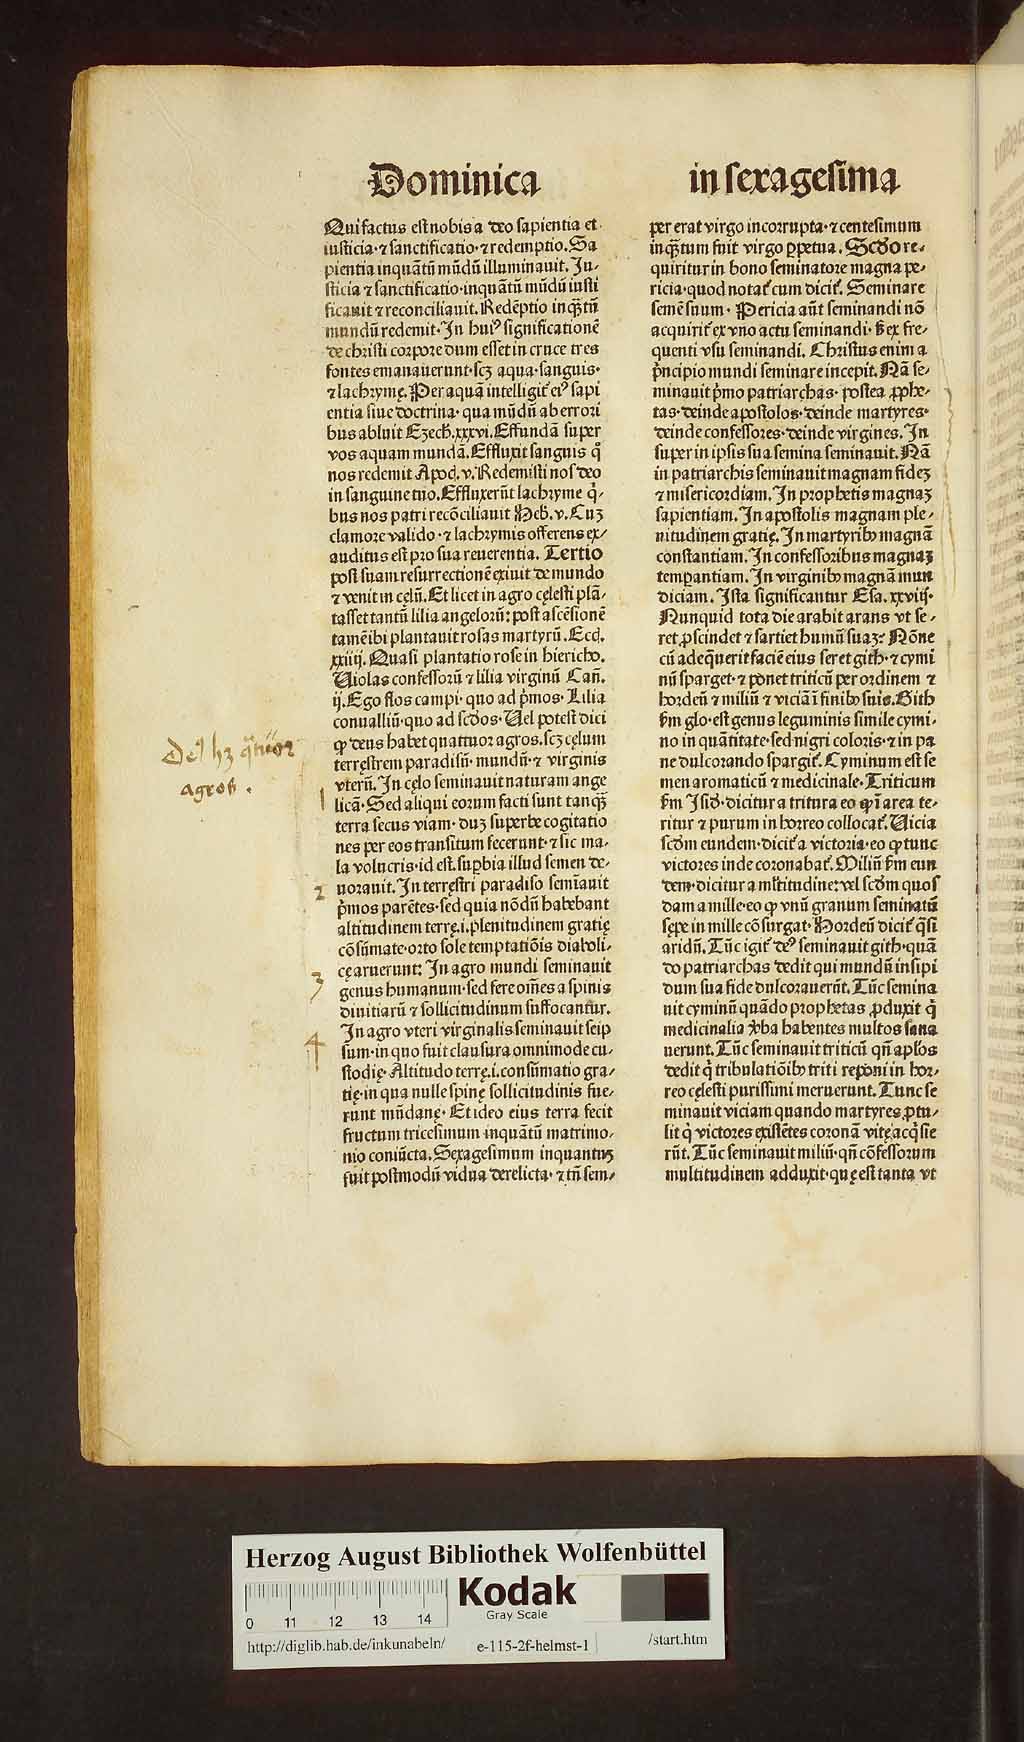 Dominica
in sexagesima
Qui factus est nobis a deo sapientia et
iusticia· ⁊ sanctificatio· ⁊ redemptio. Sa
pientia inquãtũ mũdũ illuminauit. Ju⸗
sticia ⁊ sanctificatio· inquãtũ mũdũ iusti
ficauit ⁊ reconciliauit. Redẽptio inq̃tũ
mundũ redemit· In huiꝰ significationẽ
de christi corpore dum esset in cruce tres
fontes emanauerunt· scꝫ aqua· sanguis·
⁊ lachrymę. Per aquã intelligit̃ eiꝰ sapi
entia siue doctrina· qua mũdũ ab errori
bus abluit Ezech. xxxvi. Effundã super
vos aquam mundã. Effluxit sanguis q̊
nos redemit Apoc. v. Redemisti nos deo
in sanguine tuo. Effluxerũt lachryme q̇⸗
bus nos patri recõciliauit Heb̃. v. Cuꝫ
clamore valido· ⁊ lachrymis offerens ex⸗
auditus est pro sua reuerentia. Tertio
post suam resurrectionẽ exiuit de mundo
⁊ venit in cęlũ. Et licet in agro cęlesti plã⸗
tasset tantũ lilia angelorũ: post ascẽsionẽ
tamẽ ibi plantauit rosas martyrũ. Ecc̃.
xxiiij. Quasi plantatio rose in hiericho.
Uiolas confessorũ ⁊ lilia virginũ Cañ.
ij. Ego flos campi· quo ad p̃mos· Lilia
conualliũ· quo ad scd̃os· Uel potest dici
ꝙ deus habet quattuor agros. scꝫ cęlum
terręstrem paradisũ· mundũ· ⁊ virginis
vterũ. In cęlo seminauit naturam ange
licã· Sed aliqui eorum facti sunt tanq̃
terra secus viam· duꝫ superbe cogitatio
nes per eos transitum fecerunt· ⁊ sic ma⸗
la volucris· id est. suꝑbia illud semen de⸗
uorauit. In terręstri paradiso semĩauit
p̃mos parẽtes· sed quia nõdũ habebant
altitudinem terrę. i. plenitudinem gratię
cõsũmate· orto sole temptatiõis diaboli⸗
cę aruerunt: In agro mundi seminauit
genus humanum· sed fere oẽs a spinis
diuitiarũ ⁊ sollicitudinum suffocantur.
In agro vteri virginalis seminauit seip
sum· in quo fuit clausura omnimode cu⸗
stodię· Altitudo terrę. i. consũmatio gra⸗
tię· in qua nulle spinę sollicitudinis fue⸗
runt mũdanę· Et ideo eius terra fecit
fructum tricesimum inquãtũ matrimo⸗
nio coniũcta. Sexagesimum inquantuꝫ
fuit postmodũ vidua derelicta· ⁊ tñ sem⸗
per erat virgo incorrupta· ⁊ centesimum
inq̃tum fuit virgo ꝑpetua. Scd̃o re⸗
quiritur in bono seminatore magna pe⸗
ricia· quod notat̃ cum dicit̃. Seminare
semẽ suum· Pericia aũt seminandi nõ
acquirit̃ ex vno actu seminandi· s̃ ex fre⸗
quenti vsu seminandi. Christus enim a
p̃ncipio mundi seminare incepit. Nã se⸗
minauit p̃mo patriarchas· postea ꝓphe⸗
tas· deinde apostolos· deinde martyres·
deinde confessores· deinde virgines. In
super in ipsis sua semina seminauit. Nã
in patriarchis seminauit magnam fideꝫ
⁊ misericordiam. In prophetis magnaꝫ
sapientiam. In apostolis magnam ple⸗
nitudinem gratię. In martyribꝰ magnã
constantiam. In confessoribus magnaꝫ
temperantiam. In virginibꝰ magnã mun
diciam. Ista significantur Esa. xxviij.
Nunquid tota die arabit arans vt se⸗
ret, ꝓscindet ⁊ sartiet humũ suaꝫ? Nõne
cũ adeq̃uerit faciẽ eius seret gith· ⁊ cymi
nũ sparget· ⁊ ponet triticũ per ordinem ⁊
hordeũ ⁊ miliũ ⁊ viciã ĩ finibꝰ suis. Gith
s̃m glo· est genus leguminis simile cymi⸗
no in quãtitate· sed nigri coloris· ⁊ in pa
ne dulcorando spargit̃. Cyminum est se
men aromaticũ ⁊ medicinale· Triticum
s̃m Isid̃· dicitur a tritura eo ꝙ ĩ area te⸗
ritur ⁊ purum in horreo collocat̃. Uicia
scd̃m eundem· dicit̃ a victoria· eo ꝙ tunc
victores inde coronabãt̃. Miliũ s̃m eun
dem· dicitur a ml̃titudine: vel scd̃m quos
dam a mille· eo ꝙ vnũ granum seminatũ
sępe in mille cõsurgat· Hordeũ dicit̃ q̃si
aridũ. Tũc igit̃ deꝰ seminauit gith· quã
do patriarchas dedit qui mundũ insipi
dum sua fide dulcorauerũt. Tũc semina
uit cyminũ quãdo prophetas ꝓduxit q̇
medicinalia v̾ba habentes multos sana
uerunt. Tũc seminauit triticũ qñ apl̃os
dedit q̇ tribulatiõibꝰ triti reponi in hor⸗
reo cęlesti purissimi meruerunt. Tunc se
minauit viciam quando martyres ꝓtu⸗
lit q̇ victores existẽtes coronã vitę acq̇sie
rũt. Tũc seminauit miliũ· qñ cõfessorum
multitudinem adduxit· quę est tanta vt
Deꝰ hꝫ q̃tuor
agros .
1
2
3
4
Herzog August Bibliothek Wolfenbüttel
Kodak
Gray Scale
0 11 12 13 14
http://diglib.hab.de/inkunabeln/
e-115-2f-helmst-1
/start.htm